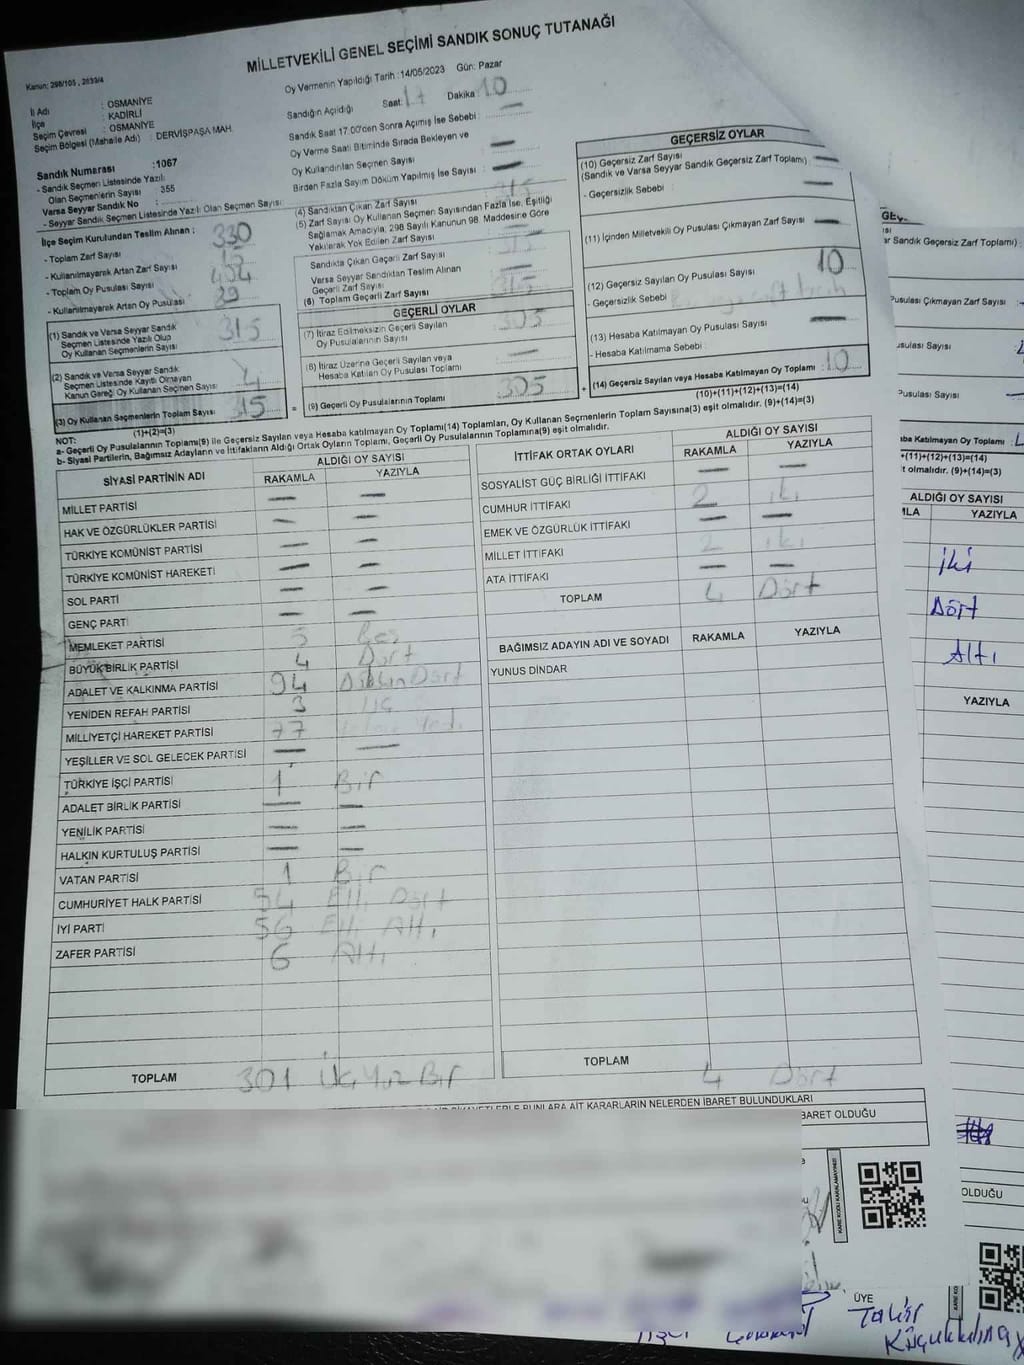 MİLLETVEKİLİ GENEL SEÇİMİ SANDIK SONUÇ TUTANAĞI
Kanun: 298/105 , 2839/4
Oy Vermenin Yapıldığı Tarih :14/05/2023 Gün: Pazar
İl Adı : OSMANİYE
İlçe : KADİRLİ
Seçim Çevresi : OSMANİYE
Seçim Bölgesi (Mahalle Adı) : DERVİŞPAŞA MAH.
Sandık Numarası :1067
- Sandık Seçmen Listesinde Yazılı
Olan Seçmenlerin Sayısı : 355
Varsa Seyyar Sandık No :
- Seyyar Sandık Seçmen Listesinde Yazılı Olan Seçmen Sayısı :
Sandığın Açıldığı Saat: 17 Dakika 10
Sandık Saat 17.00'den Sonra Açılmış İse Sebebi : —
Oy Verme Saati Bitiminde Sırada Bekleyen ve
Oy Kullandırılan Seçmen Sayısı : —
Birden Fazla Sayım Döküm Yapılmış İse Sayısı : —
İlçe Seçim Kurulundan Teslim Alınan :
- Toplam Zarf Sayısı : 330
- Kullanılmayarak Artan Zarf Sayısı : 15
- Toplam Oy Pusulası Sayısı :
- Kullanılmayarak Artan Oy Pusulası :
(1) Sandık ve Varsa Seyyar Sandık
Seçmen Listesinde Yazılı Olup
Oy Kullanan Seçmenlerin Sayısı : 315
(2) Sandık ve Varsa Seyyar Sandık
Seçmen Listesinde Kayıtlı Olmayan
Kanun Gereği Oy Kullanan Seçmen Sayısı :
(3) Oy Kullanan Seçmenlerin Toplam Sayısı : 315
(1)+(2)=(3)
(4) Sandıktan Çıkan Zarf Sayısı : 315
(5) Zarf Sayısı Oy Kullanan Seçmen Sayısından Fazla İse, Eşitliği
Sağlamak Amacıyla; 298 Sayılı Kanunun 98. Maddesine Göre
Yakılarak Yok Edilen Zarf Sayısı : —
Sandıkta Çıkan Geçerli Zarf Sayısı : 315
Varsa Seyyar Sandıktan Teslim Alınan
Geçerli Zarf Sayısı : —
(6) Toplam Geçerli Zarf Sayısı : 315
GEÇERLİ OYLAR
(7) İtiraz Edilmeksizin Geçerli Sayılan
Oy Pusulalarının Sayısı : 305
(8) İtiraz Üzerine Geçerli Sayılan veya
Hesaba Katılan Oy Pusulası Toplamı : —
(9) Geçerli Oy Pusulalarının Toplamı : 305
GEÇERSİZ OYLAR
(10) Geçersiz Zarf Sayısı
(Sandık ve Varsa Seyyar Sandık Geçersiz Zarf Toplamı) : —
- Geçersizlik Sebebi : —
(11) İçinden Milletvekili Oy Pusulası Çıkmayan Zarf Sayısı : —
(12) Geçersiz Sayılan Oy Pusulası Sayısı : 10
- Geçersizlik Sebebi :
(13) Hesaba Katılmayan Oy Pusulası Sayısı : —
- Hesaba Katılmama Sebebi :
(14) Geçersiz Sayılan veya Hesaba Katılmayan Oy Pusulası Toplamı : 10
(10)+(11)+(12)+(13)=(14)
NOT:
a- Geçerli Oy Pusulalarının Toplamı(9) ile Geçersiz Sayılan veya Hesaba katılmayan Oy Toplamı(14) Toplamları, Oy Kullanan Seçmenlerin Toplam Sayısına(3) eşit olmalıdır. (9)+(14)=(3)
b- Siyasi Partilerin, Bağımsız Adayların ve İttifakların Aldığı Ortak Oyların Toplamı, Geçerli Oy Pusulalarının Toplamına(9) eşit olmalıdır.
SİYASİ PARTİNİN ADI ALDIĞI OY SAYISI
RAKAMLA YAZIYLA
MİLLET PARTİSİ — —
HAK VE ÖZGÜRLÜKLER PARTİSİ — —
TÜRKİYE KOMÜNİST PARTİSİ — —
TÜRKİYE KOMÜNİST HAREKETİ — —
SOL PARTİ — —
GENÇ PARTİ — —
MEMLEKET PARTİSİ 5 Beş
BÜYÜK BİRLİK PARTİSİ 4 Dört
ADALET VE KALKINMA PARTİSİ 94 Doksan Dört
YENİDEN REFAH PARTİSİ 3 Üç
MİLLİYETÇİ HAREKET PARTİSİ 77 Yetmiş Yedi
YEŞİLLER VE SOL GELECEK PARTİSİ — —
TÜRKİYE İŞÇİ PARTİSİ 1 Bir
ADALET BİRLİK PARTİSİ — —
YENİLİK PARTİSİ — —
HALKIN KURTULUŞ PARTİSİ — —
VATAN PARTİSİ 1 Bir
CUMHURİYET HALK PARTİSİ 54 Elli Dört
İYİ PARTİ 56 Elli Altı
ZAFER PARTİSİ 6 Altı
TOPLAM 301 Üç Yüz Bir
İTTİFAK ORTAK OYLARI ALDIĞI OY SAYISI
RAKAMLA YAZIYLA
SOSYALİST GÜÇ BİRLİĞİ İTTİFAKI — —
CUMHUR İTTİFAKI 2 iki
EMEK VE ÖZGÜRLÜK İTTİFAKI — —
MİLLET İTTİFAKI 2 iki
ATA İTTİFAKI — —
TOPLAM 4 Dört
BAĞIMSIZ ADAYIN ADI VE SOYADI RAKAMLA YAZIYLA
YUNUS DİNDAR
TOPLAM 4 Dört
BUNLARA AİT KARARLARIN NELERDEN İBARET BULUNDUKLARI
BARET OLDUĞU
KARE KODU KARALAMAYINIZ!
GEÇ
ar Sandık Geçersiz Zarf Toplamı) :
Pusulası Çıkmayan Zarf Sayısı
usulası Sayısı
Pusulası Sayısı
aba Katılmayan Oy Toplamı :
+(11)+(12)+(13)=(14)
t olmalıdır. (9)+(14)=(3)
ALDIĞI OY SAYISI
MLA YAZIYLA
İki
Dört
Altı
YAZIYLA
OLDUĞU
KARE KO
ÜYE
Tahir